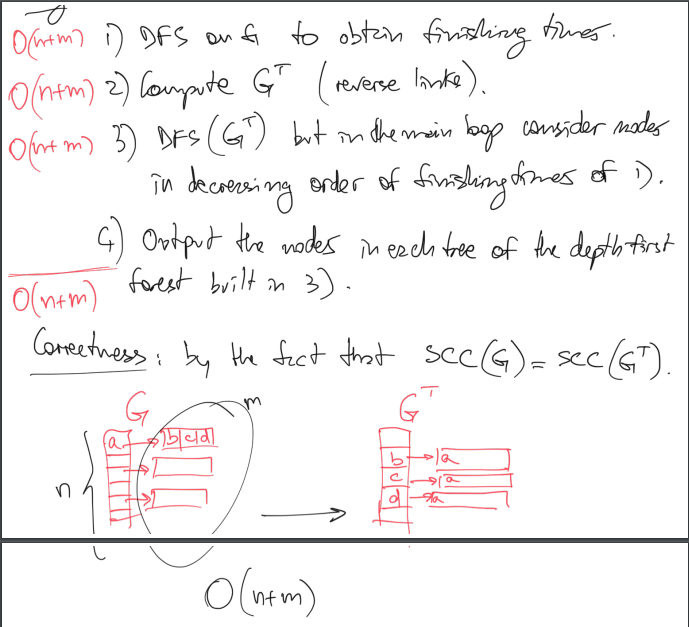 O(n+m) 1) DFS on G to obtain finishing times.
O(n+m) 2) Compute G^T (reverse links).
O(n+m) 3) DFS(G^T) but in the main loop consider nodes
in decreasing order of finishing times of 1).
4) Output the nodes in each tree of the depth-first
forest built in 3).
O(n+m)
Correctness: by the fact that SCC(G) = SCC(G^T).
G m G^T
a b c d
b a
c a
n d a
O(n+m)